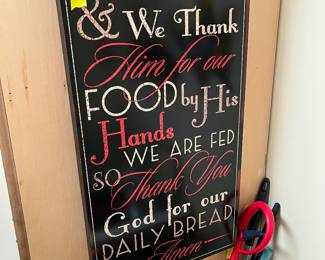 & We Thank
Him for our
FOOD by His
Hands
WE ARE FED
SO Thank You
God for our
DAILY BREAD
Amen